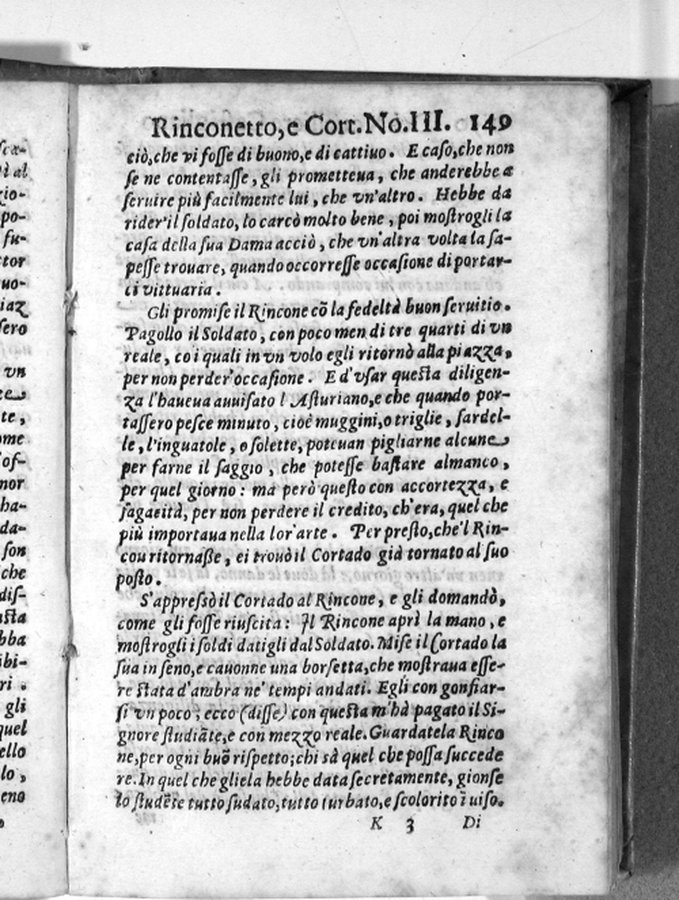 Rinconetto, e Cort. No. III. 149
ciò, che vi fosse di buono, e di cattiuo. E caso, che non
se ne contentasse, gli prometteua, che anderebbe a
seruire più facilmente lui, che vn'altro. Hebbe da
rider'il soldato, lo carcò molto bene, poi mostrogli la
casa della sua Dama acciò, che vn'altra volta la sa-
pesse trouare, quando occorresse occasione di portar-
ci vittuaria.
Gli promise il Rincone cõ la fedeltà buon seruitio.
Pagollo il Soldato, con poco men di tre quarti di vn
reale, co i quali in vn volo egli ritornò alla piazza,
per non perder'occasione. E d'vsar questa diligen-
za l'haueua auuisato l Asturiano, e che quando por-
tassero pesce minuto, cioè muggini, o triglie, sardel-
le, l'inguatole, o solette, poteuan pigliarne alcune
per farne il saggio, che potesse bastare almanco,
per quel giorno: ma però questo con accortezza, e
sagacità, per non perdere il credito, ch'era, quel che
più importaua nella lor'arte. Per presto, che'l Rin-
cou ritornasse, ei trouò il Cortado già tornato al suo
posto.
S'appressò il Cortado al Rincone, e gli domandò,
come gli fosse riuscita: Il Rincone aprì la mano, e
mostrogli i soldi datigli dal Soldato. Mise il Cortado la
sua in seno, e cauonne una borsetta, che mostraua esse-
re stata d'ambra ne' tempi andati. Egli con gonfiar-
si vn poco; ecco (disse) con questa m'hà pagato il Si-
gnore studiãte, e con mezzo reale. Guardatela Rinco
ne, per ogni buõ rispetto; chi sà quel che possa succede
re. In quel che gliela hebbe data secretamente, gionse
lo studẽte tutto sudato, tutto turbato, e scolorito ĩ uiso.
K 3 Di
ſcæ-
ì al
gio-
po-
fu-
tor
uo-
iaz
sero
vn
te,
ome
'of-
nor
ha-
da-
son
che
dis-
sta
bba
ibi-
ri.
gli
quel
ello
lo,
eno